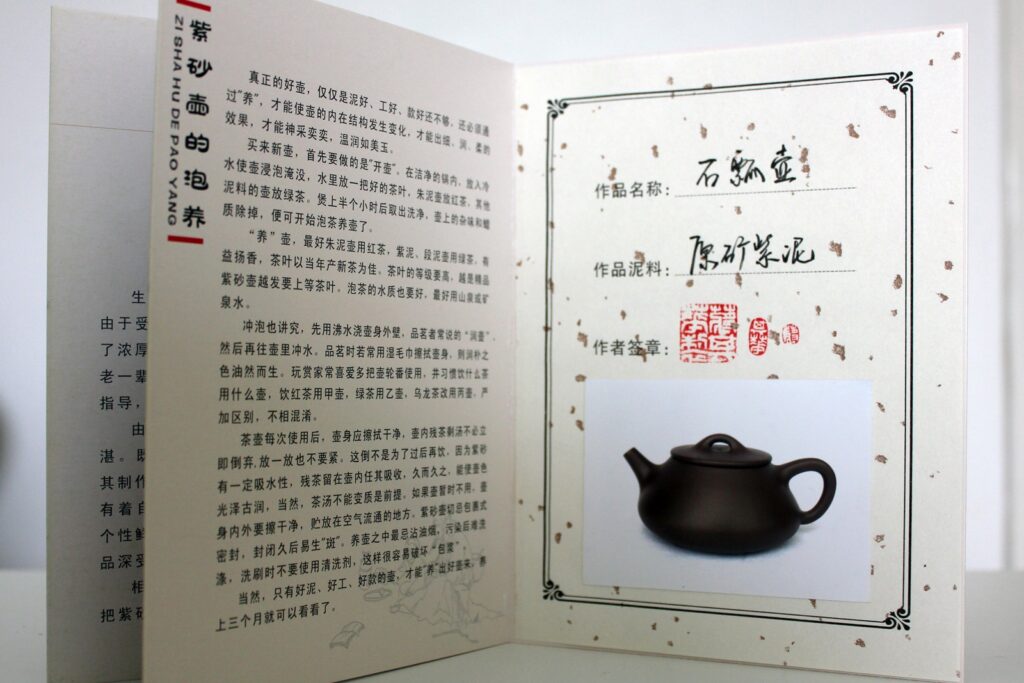 紫砂壶的泡养
ZI SHA HU DE PAO YANG
真正的好壶，仅仅是泥好、工好、款好还不够，还必须通
过"养"，才能使壶的内在结构发生变化，才能出细、润、柔的
效果，才能神采奕奕，温润如美玉。
买来新壶，首先要做的是"开壶"。在洁净的锅内，放入冷
水使壶浸泡淹没，水里放一把好的茶叶，朱泥壶放红茶，其他
泥料的壶放绿茶。煲上半个小时后取出洗净，壶上的杂味和蜡
质除掉，便可开始泡茶养壶了。
"养"壶，最好朱泥壶用红茶，紫泥、段泥壶用绿茶，有
益扬香，茶叶以当年产新茶为佳。茶叶的等级要高，越是精品
紫砂壶越发要上等茶叶。泡茶的水质也要好，最好用山泉或矿
泉水。
冲泡也讲究，先用沸水浇壶身外壁，品茗者常说的"润壶"，
然后再往壶里冲水。品茗时若常用湿毛巾擦拭壶身，则润朴之
色油然而生。玩赏家常喜爱多把壶轮番使用，并习惯饮什么茶
用什么壶，饮红茶用甲壶，绿茶用乙壶，乌龙茶改用丙壶，严
加区别，不相混淆。
茶壶每次使用后，壶身应擦拭干净，壶内残茶剩汤不必立
即倒弃，放一放也不要紧。这倒不是为了过后再饮，因为紫砂
有一定吸水性，残茶留在壶内任其吸收，久而久之，能使壶色
光泽古润，当然，茶汤不能变质是前提。如果壶暂时不用，壶
身内外要擦干净，贮放在空气流通的地方，紫砂壶切忌包裹式
密封，封闭久后易生"斑"。养壶之中最忌沾油烟，污染后难洗
涤，洗刷时不要使用清洗剂，这样很容易破坏"包浆"。
当然，只有好泥、好工、好款的壶，才能"养"出好壶来，养
上三个月就可以看看了。
生
由于受
了浓厚
老一辈
指导，
由
湛。既
其制作
有着自
个性鲜
品深受
相
把紫砂
作品名称：石瓢壶
作品泥料：原矿紫泥
作者签章：